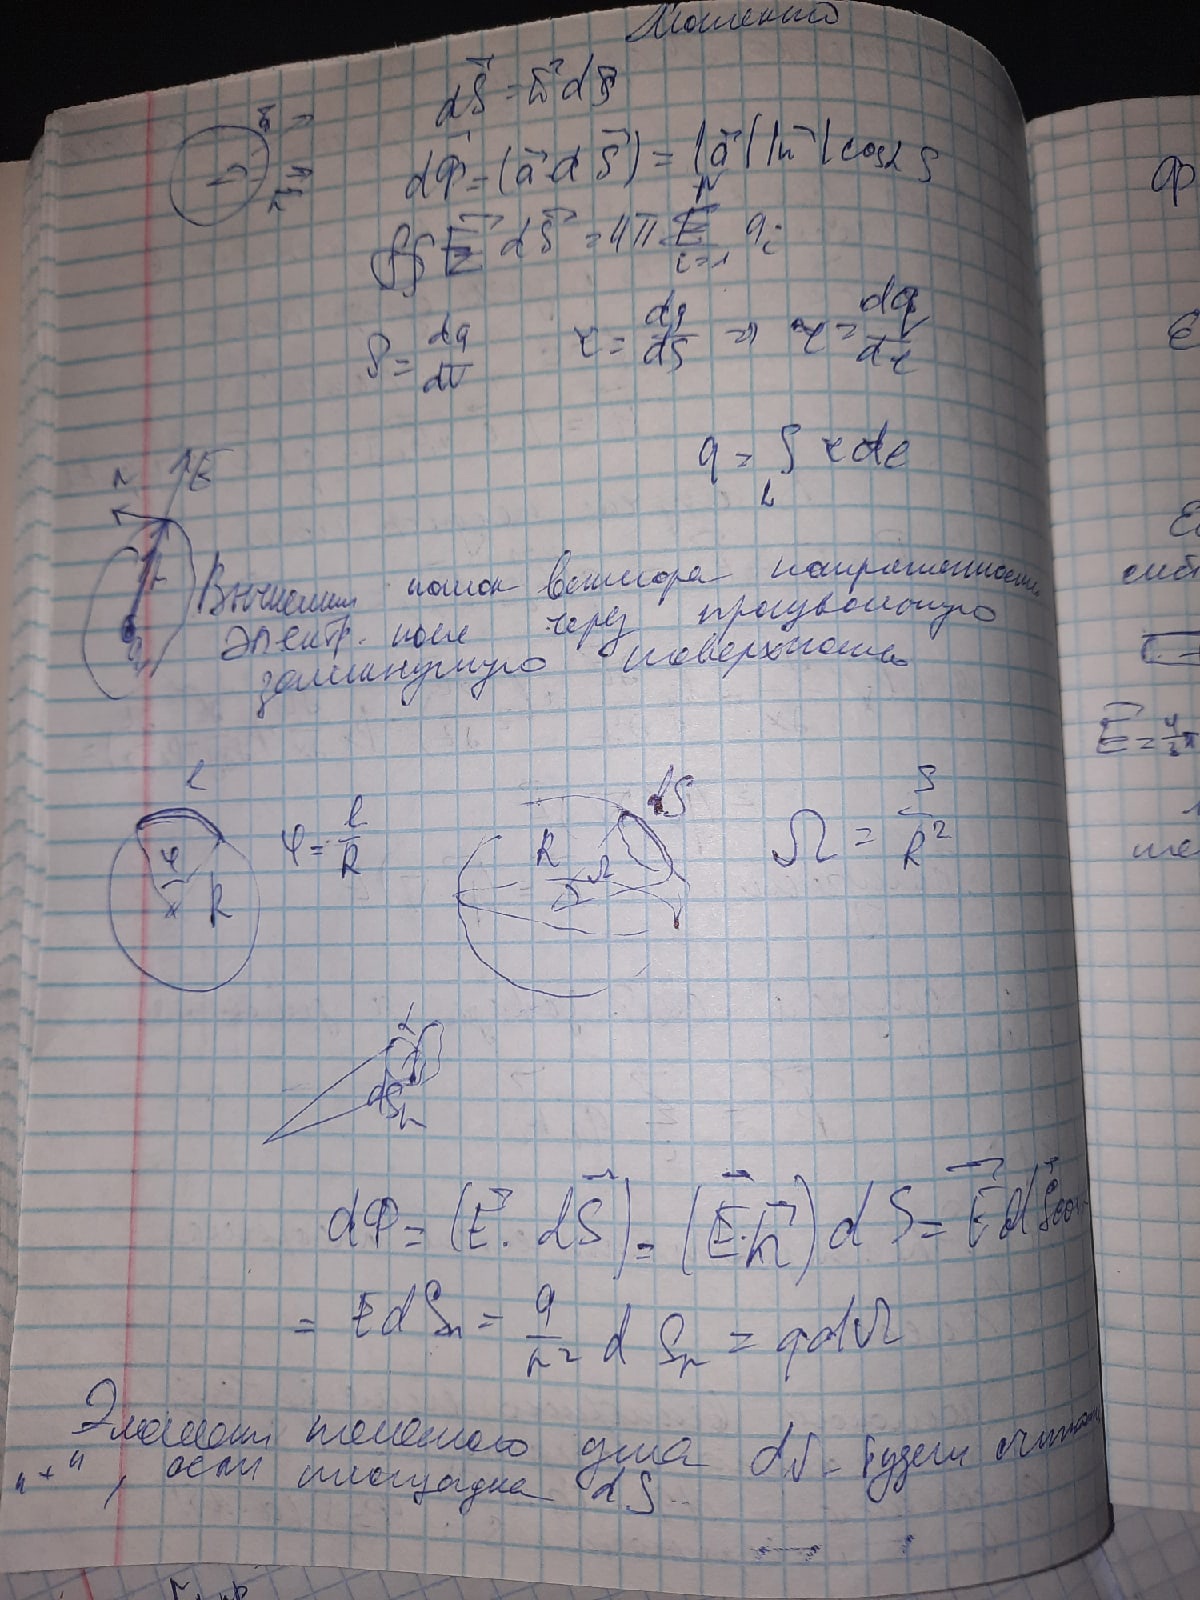 dS⃗ = n⃗ dS
dΦ = (a⃗ d S⃗) = |a⃗| |n⃗| cosα S
∯ E⃗ dS⃗ = 4π Σ q_i
N
i=1
ρ = dq/dV τ = dq/dS ⇒ τ = dq/dl
q = ∫ τ dl
L
n E
r
q
Вычислим поток вектора напряженности
электр. поля через произвольную
замкнутую поверхность
l
φ
R
φ = l/R
dS
R
Ω
Ω = S/R²
α
dSn
dΦ = (E⃗ · dS⃗) = (E⃗·n⃗) dS = E⃗ dS⃗
= E dSn = q/r² dSn = q dΩ
Элемент телесного угла dΩ будем считать
"+", если площадка dS
E⃗ = 4/3 π